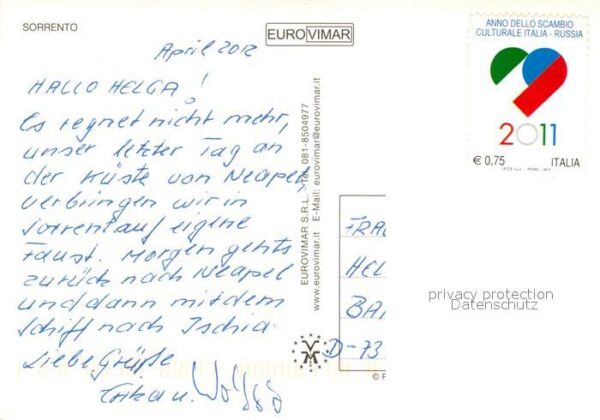 SORRENTO
EUROVIMAR
April 2012
HALLO HELGA!
Es regnet nicht mehr,
unser letzter Tag an
der Küste von Neapel,
verbringen wir in
Sorrent auf eigene
Faust. Morgen gehts
zurück nach Neapel
und dann mit dem
Schiff nach Ischia.
Liebe Grüße
Erika u.
EUROVIMAR S.R.L. - Tel. 081-8504977
www.eurovimar.it E-Mail: eurovimar@eurovimar.it
ANNO DELLO SCAMBIO
CULTURALE ITALIA - RUSSIA
2011
€ 0,75 ITALIA
FRAU
HEL
BA
D-73
privacy protection
Datenschutz